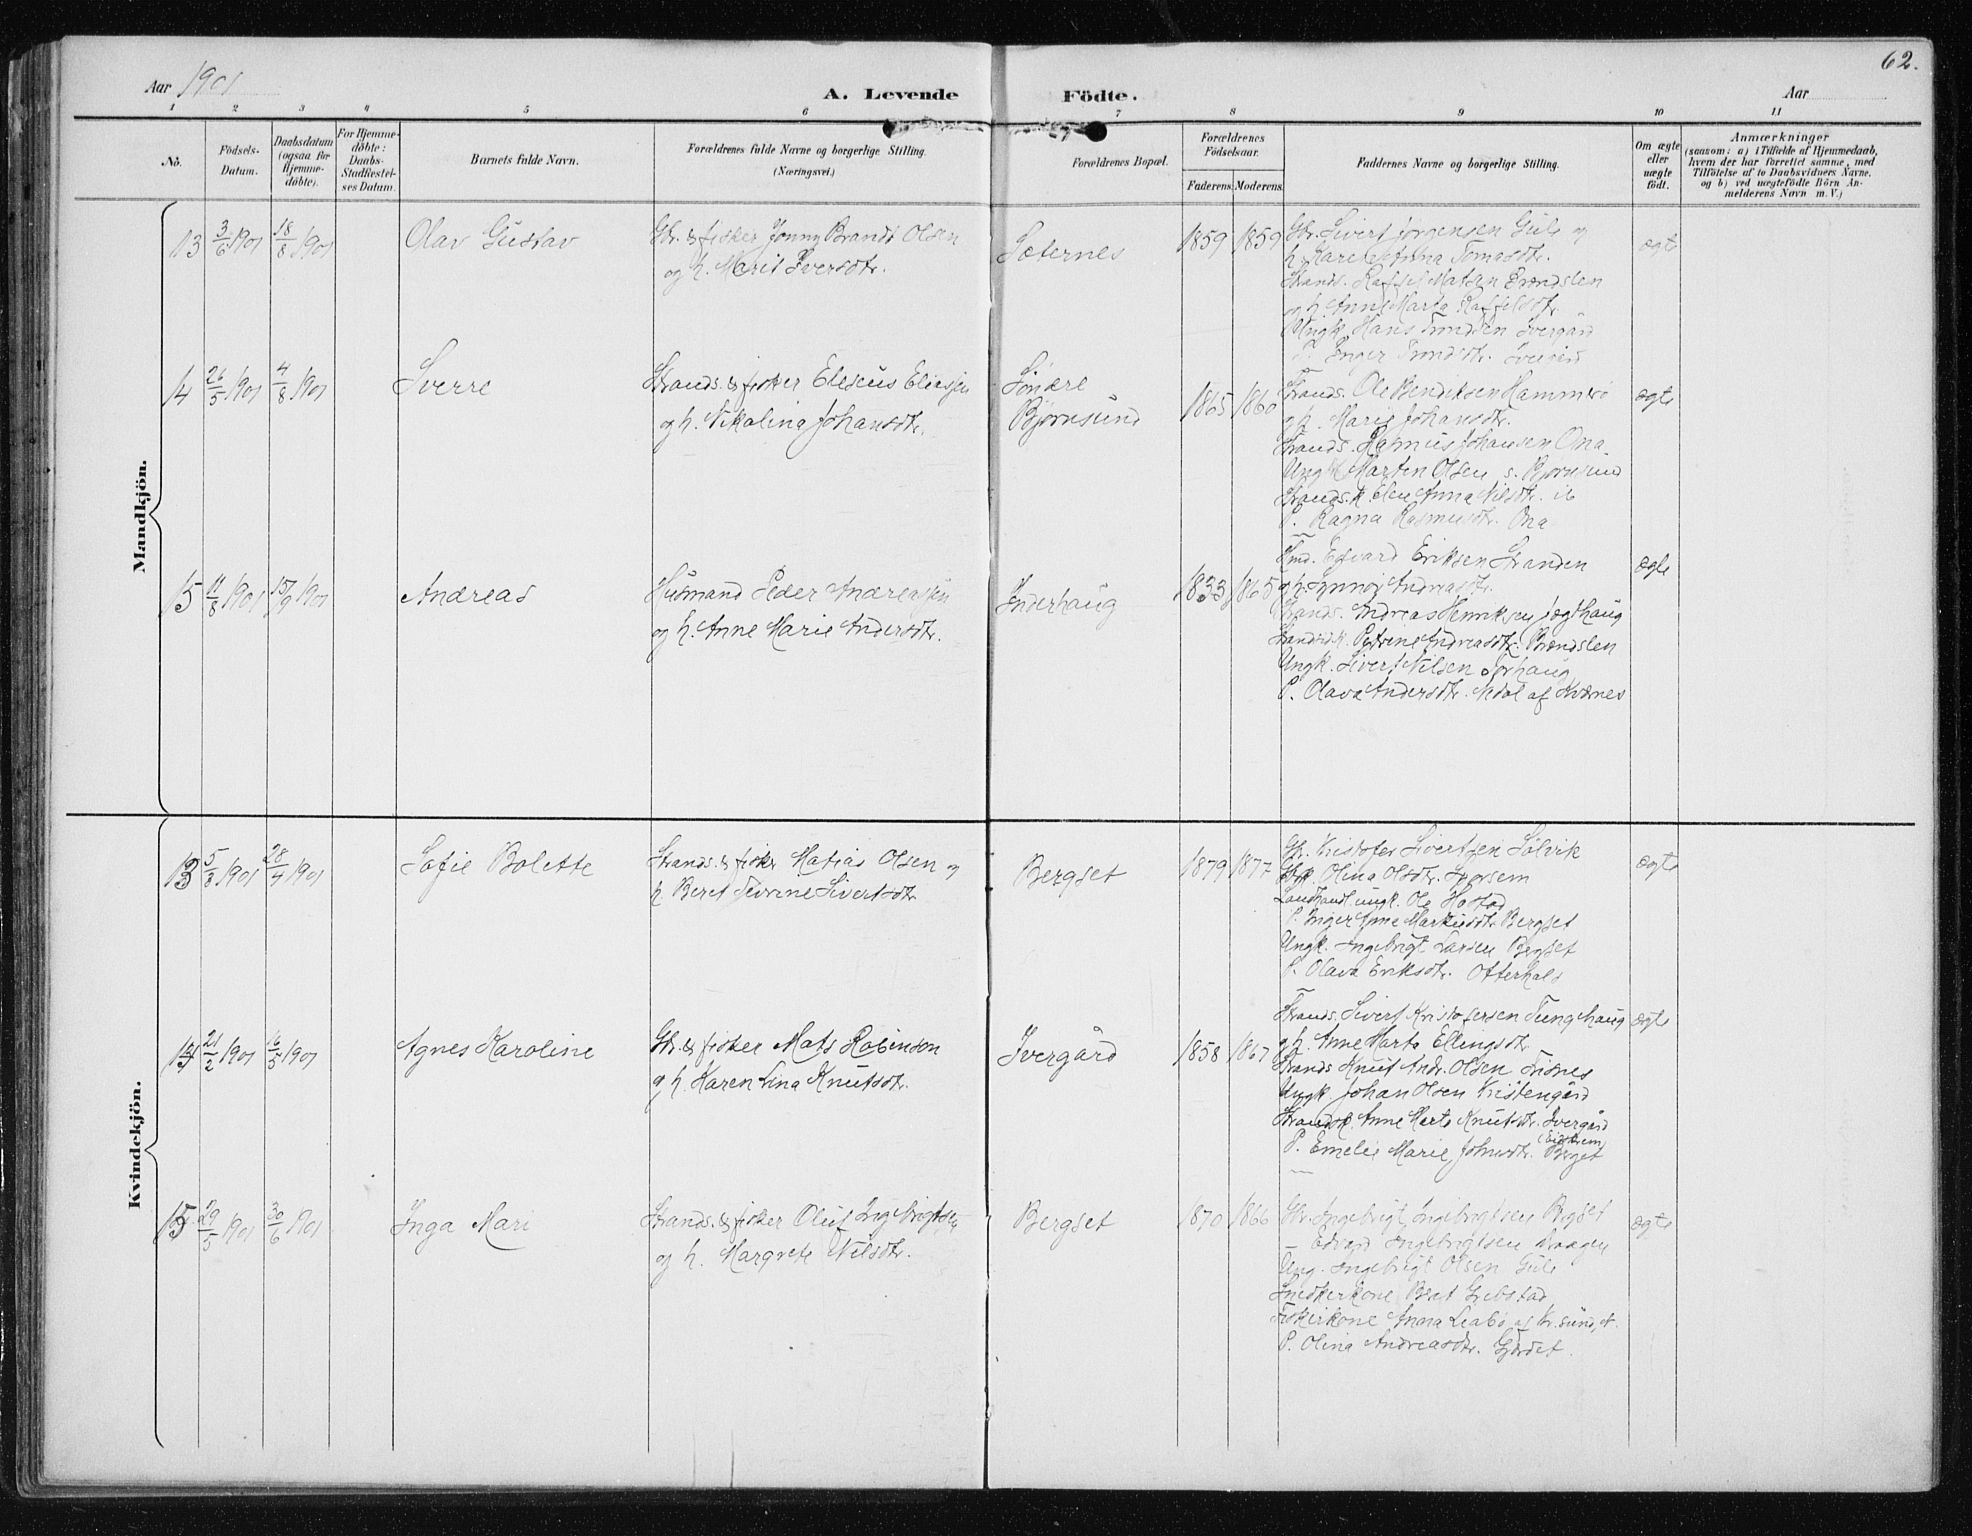 62.
Aar 1901
A. Levende Födte.
Aar
1 2 3 4 5 6 7 8 9 10 11
No.
Födsels-Datum.
Daabsdatum (ogsaa for Hjemme-döbte).
For Hjemme-döbte: Daabs-Stadfæstel-ses Datum.
Barnets fulde Navn.
Forældrenes fulde Navne og borgerlige Stilling. (Næringsvei.)
Forældrenes Bopæl.
Forældrenes Födselsaar.
Faderens. Moderens.
Faddernes Navne og borgerlige Stilling.
Om ægte eller uægte födt.
Anmærkninger
(saasom: a) i Tilfælde af Hjemmedaab,
hvem der har forrettet samme, med
Tilföielse af to Daabsvidners Navne,
og b) ved uægtefödte Börn An-
melderens Navn m. V.)
Mandkjön.
13 3/6 1901 18/8 1901 Olav Gustav
Gbr. & fisker Jonny Brandt Olsen
og h. Marit Iversdtr.
Sæternes 1859 1859
Gbr. Sivert Jørgensen Gule og
h. Karen Anna Tomasdtr.
Strands. Raffel Matsen Brændslen
og h. Anne Marta Raffelsdtr.
Ungk. Hans Trondsen Ivergård
P. Inger Trondsdtr. Ivergård
ægte
14 26/5 1901 4/8 1901 Sverre
Strands. & fisker Eleseus Eliassen
og h. Nikolina Johansdtr.
Søndre
Bjørnsund 1865 1860
Strands. Ole Bendiksen Hammerø
og h. Marit Johansdtr.
Strands. Rasmus Johansen Ona.
Ungk. Marten Olsen s. Bjørnsund
Strands.k. Elen Anna Nilsdtr. ib
P. Ragna Rasmusdtr. Ona
ægte
15 11/8 1901 15/9 1901 Andreas
Husmand Peder Andreassen
og h. Anne Marie Andersdtr.
Inderhaug 1833 1865
Hmd. Edvard Eriksen Stranden
og h. Synnøv Andreasdtr.
Strands. Andreas Henriksen Jægthaug
Strandsk. Petrine Andreasdtr. Brændslen
Ungk. Sivert Nilsen Sørhaug
P. Olava Andersdtr. Mdal af Kværnes
ægte
Kvindekjön.
13 5/3 1901 28/4 1901 Sofie Bolette
Strands. & fisker Matias Olsen og
h. Beret Severine Sivertsdtr.
Bergset 1879 1877
Gbr. Kristofer Sivertsen Solvik
Gbrk. Olina Olsdtr. Sporsem
Landhandl. ungk. Ole Hostad
P. Inger Jane Markusdtr. Bergset
Ungk. Ingebrigt Larsen Bergset
P. Olava Eriksdtr. Otterhals
ægte
14 21/2 1901 16/5 1901 Agnes Karoline
Gbr. & fisker Mats Robinson
og h. Karen Lina Knutsdtr.
Ivergård 1858 1867
Strands. Sivert Kristofersen Tunghaug
og h. Anne Marta Ellingsdtr.
Strands Knut Andr. Olsen
Ungk. Johan Olsen Kristengård
Strandsk. Anne Marta Knutsdtr. Ivergård
P. Emelie Marie Johnsdtr. Bergset
(Eidskrem)
ægte
15 29/5 1901 30/6 1901 Inga Mari
Strands. & fisker Oluf Ingebrigtsen
og h. Margrete Nilsdtr.
Bergset 1870 1866
Gbr. Ingebrigt Ingebrigtsen Bergset
— Edvard Ingebrigtsen Vaagen
Ung. Ingebrigt Olsen Gule
Snedkerkone Berit Grebstad
Fiskerkone Anna Leabø, af Kr.sund, N.
P. Olina Andreasdtr. Gjerdet.
ægte